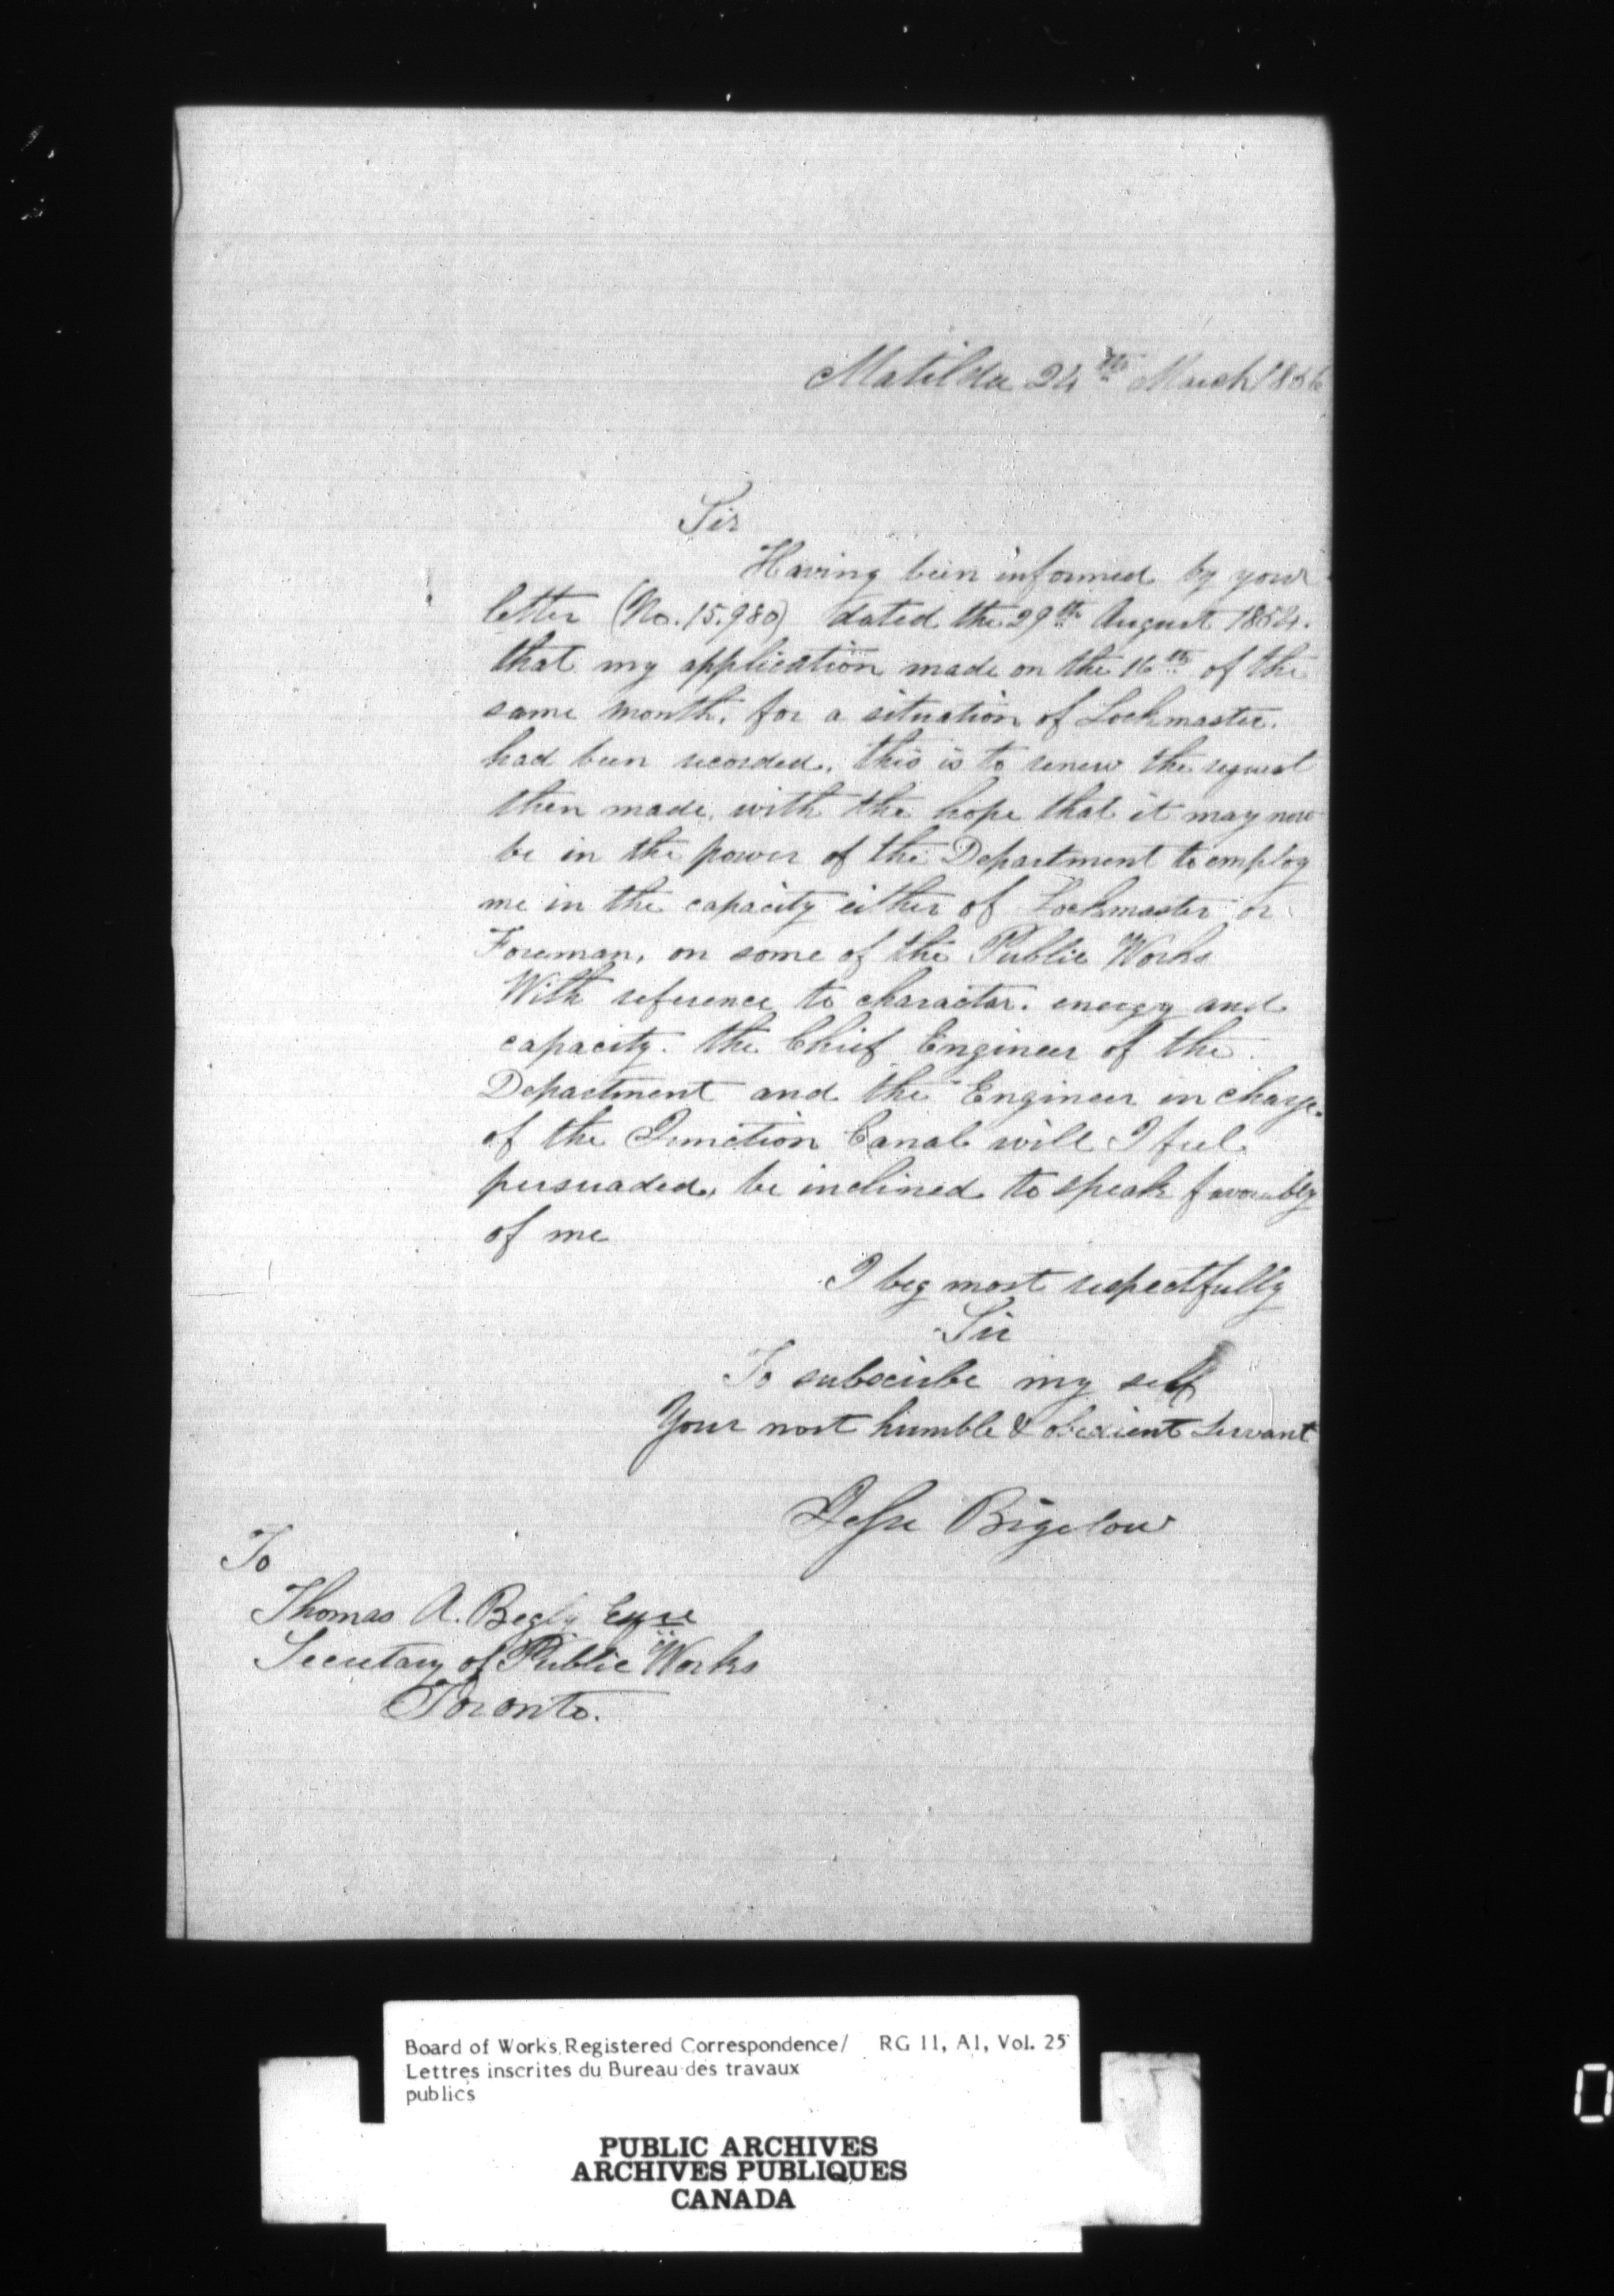 Matilda 24th March 1856
Sir
Having been informed by your
letter (No. 15.980) dated the 29th August 1854.
that my application made on the 16th of the
same month, for a situation of Lockmaster.
had been recorded, this is to renew the request
then made, with the hope that it may now
be in the power of the Department to employ
me in the capacity either of Lockmaster or
Foreman, on some of the Public Works
With reference to character. energy and
capacity. the Chief Engineer of the
Department and the Engineer in charge
of the Junction Canal will I feel
persuaded, be inclined to speak favourably
of me
I beg most respectfully
Sir
To subscribe my self
Your most humble & obedient Servant
Jesse Bigelow
To
Thomas A. Begly Esqre
Secretary of Public Works
Toronto.
Board of Works Registered Correspondence/ RG 11, A1, Vol. 25
Lettres inscrites du Bureau des travaux
publics
PUBLIC ARCHIVES
ARCHIVES PUBLIQUES
CANADA
0